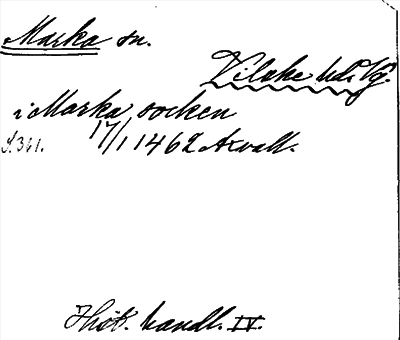 Marka sn.
Vilske hd. Vg.
i Marka socken
17/1 1462 Axvall.
S. 361.
Hist. handl. IV.